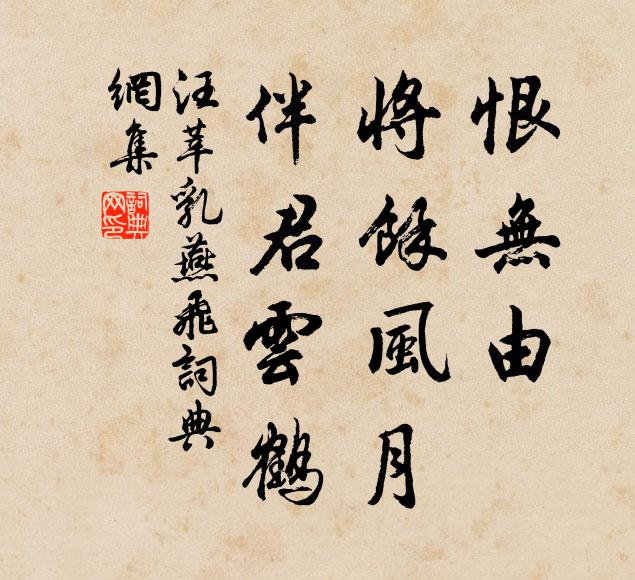 恨無由
將餘風月
伴君雲鶴
汪莘乳燕飛詞典
網集
詞典
网印